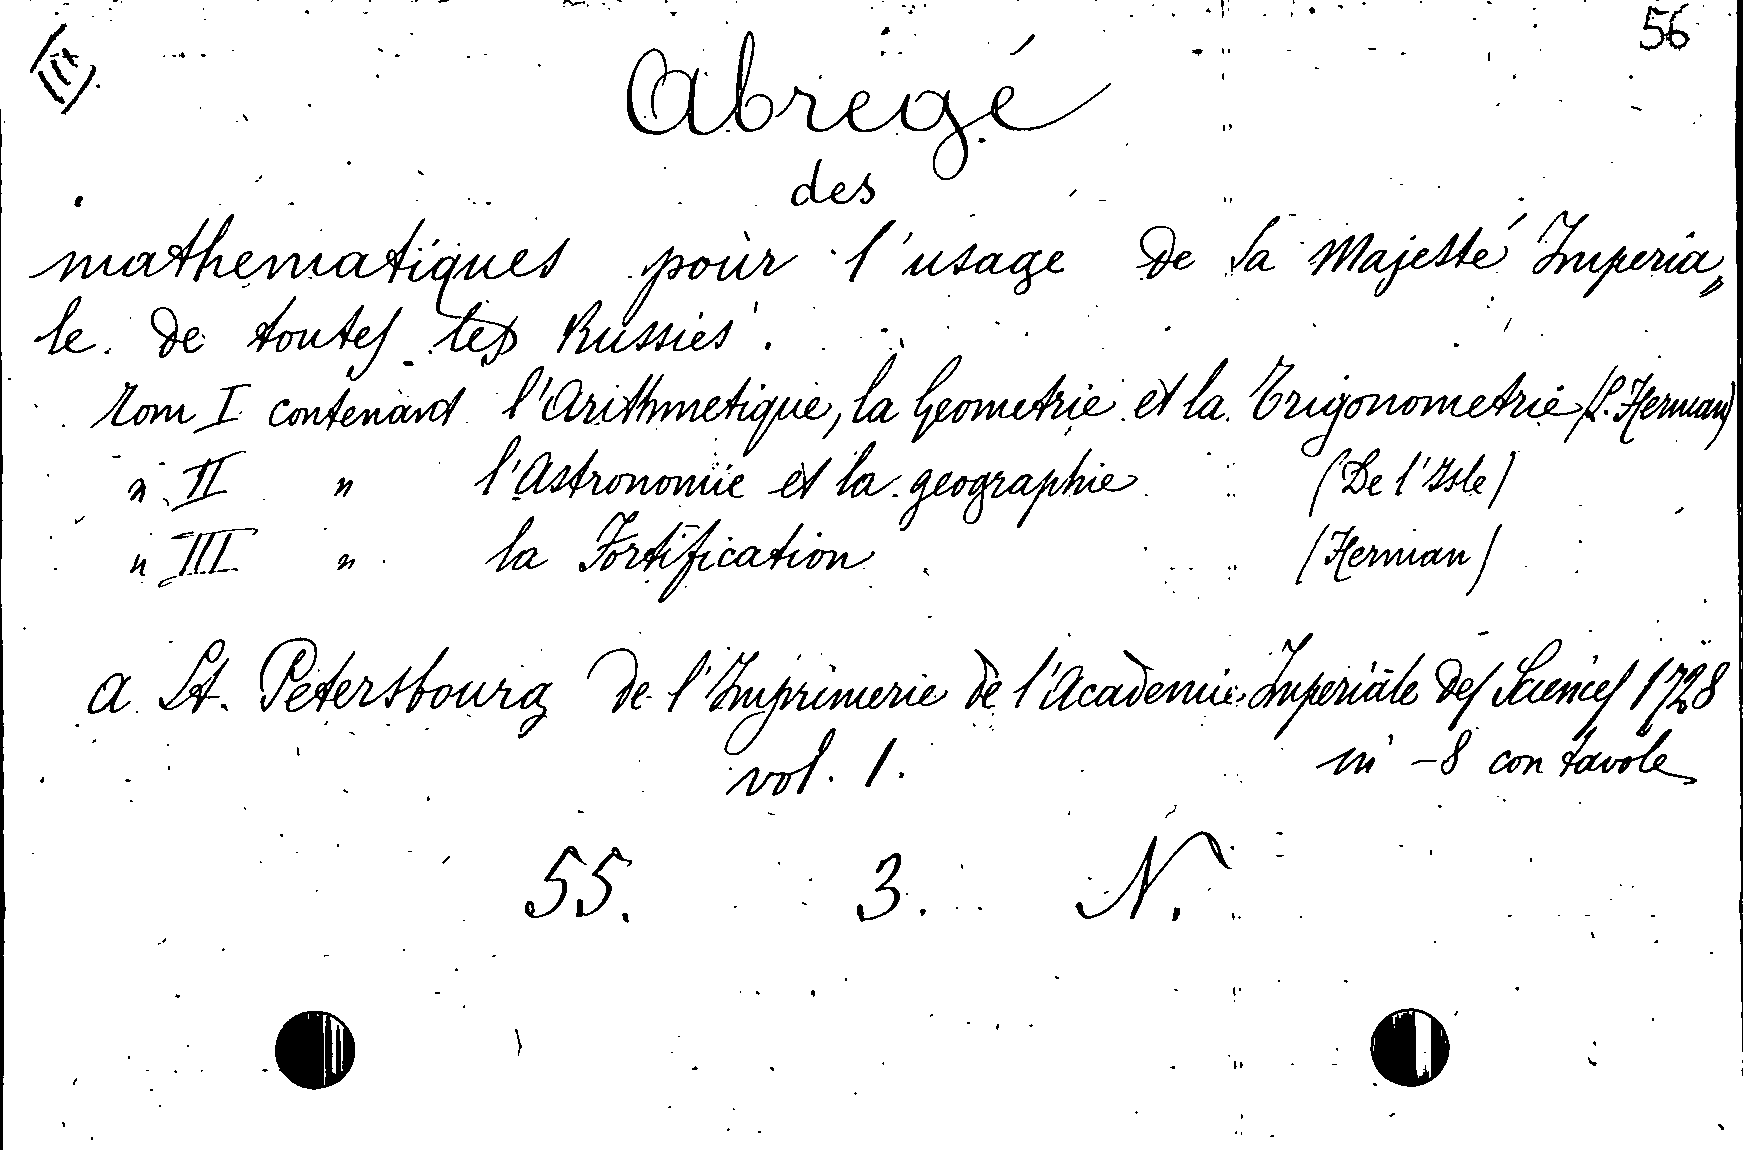 56
Abregé
des
mathematiques pour l'usage de Sa Majesté Imperia„
le de toutes les Russies.
Tom I contenant l'Arithmetique, la Geometrie et la Trigonometrie (S. Herman)
" II " l'Astronomie et la geographie (De l'Isle)
" III " la Fortification (Herman)
a St. Petersbourg de l'Imprimerie de l'Academie Imperiale des Sciences 1728
vol. 1. in -8 con tavole
55. 3. N.